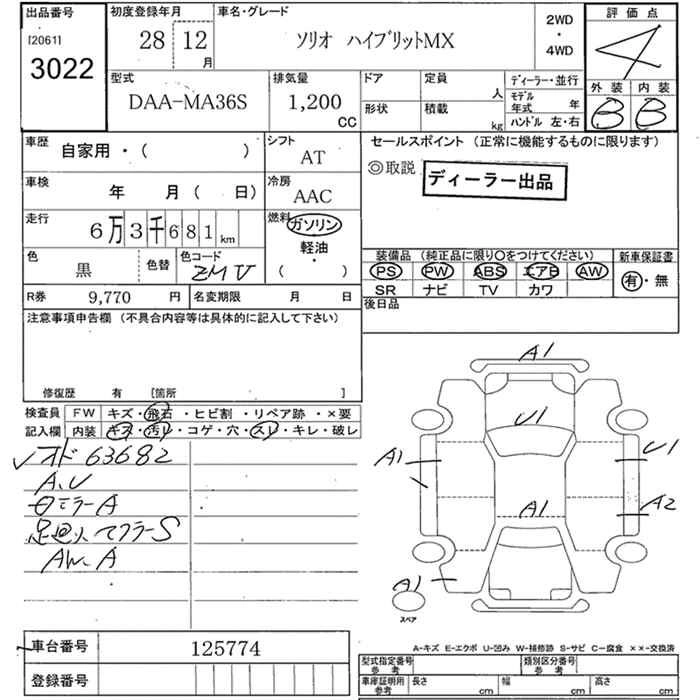 出品番号
[2061]
3022
初度登録年月
28年 12月
車名・グレード
ソリオ ハイブリットMX
2WD
・
4WD
評価点
4
型式
DAA-MA36S
排気量
1,200
CC
ドア
定員
人
形状
積載
kg
ディーラー・並行
モデル
年式 年
ハンドル 左・右
外装
B
内装
B
車歴
自家用・( )
シフト
AT
セールスポイント (正常に機能するものに限ります)
◎取説
ディーラー出品
車検
年 月( 日)
冷房
AAC
走行
6万3千681km
燃料
ガソリン
軽油
・
( )
色
黒
色替
色コード
ZMV
装備品 (純正品に限り○をつけてください)
PS PW ABS エアB AW
SR ナビ TV カワ
新車保証書
有・無
R券 9,770 円
名変期限 月 日
後日品
注意事項申告欄 (不具合内容等は具体的に記入して下さい)
修復歴 有 [箇所 ]
検査員
記入欄
FW キズ・飛石・ヒビ割・リペア跡・×要
内装 キズ・汚レ・コゲ・穴・スレ・キレ・破レ
オド 63682
A.U
ミラーA
足廻リ マフラーS
AW.A
A1
U1
A1
U1
A1
A2
A1
スペア
車台番号 125774
登録番号
A-キズ E-エクボ U-凹み W-補修跡 S-サビ C-腐食 ××-交換済
型式指定番号
参考
類別区分番号
参考
車庫証明用
参考
長さ cm
幅 cm
高さ cm